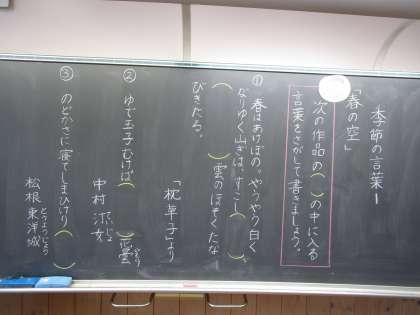 季節の言葉1
「春の空」
次の作品の( )の中に入る
言葉をさがして書きましょう。
① 春はあけぼの。やうやう白く
なりゆく山ぎは、すこし( )
( )雲のほそくたな
びきたる。
「枕草子」より
② ゆで玉子むけば( )花曇
ぐもり
中村 汀女
じょ
③ のどかさに寝てしまひけり( )
松根 東洋城
とうようじょう